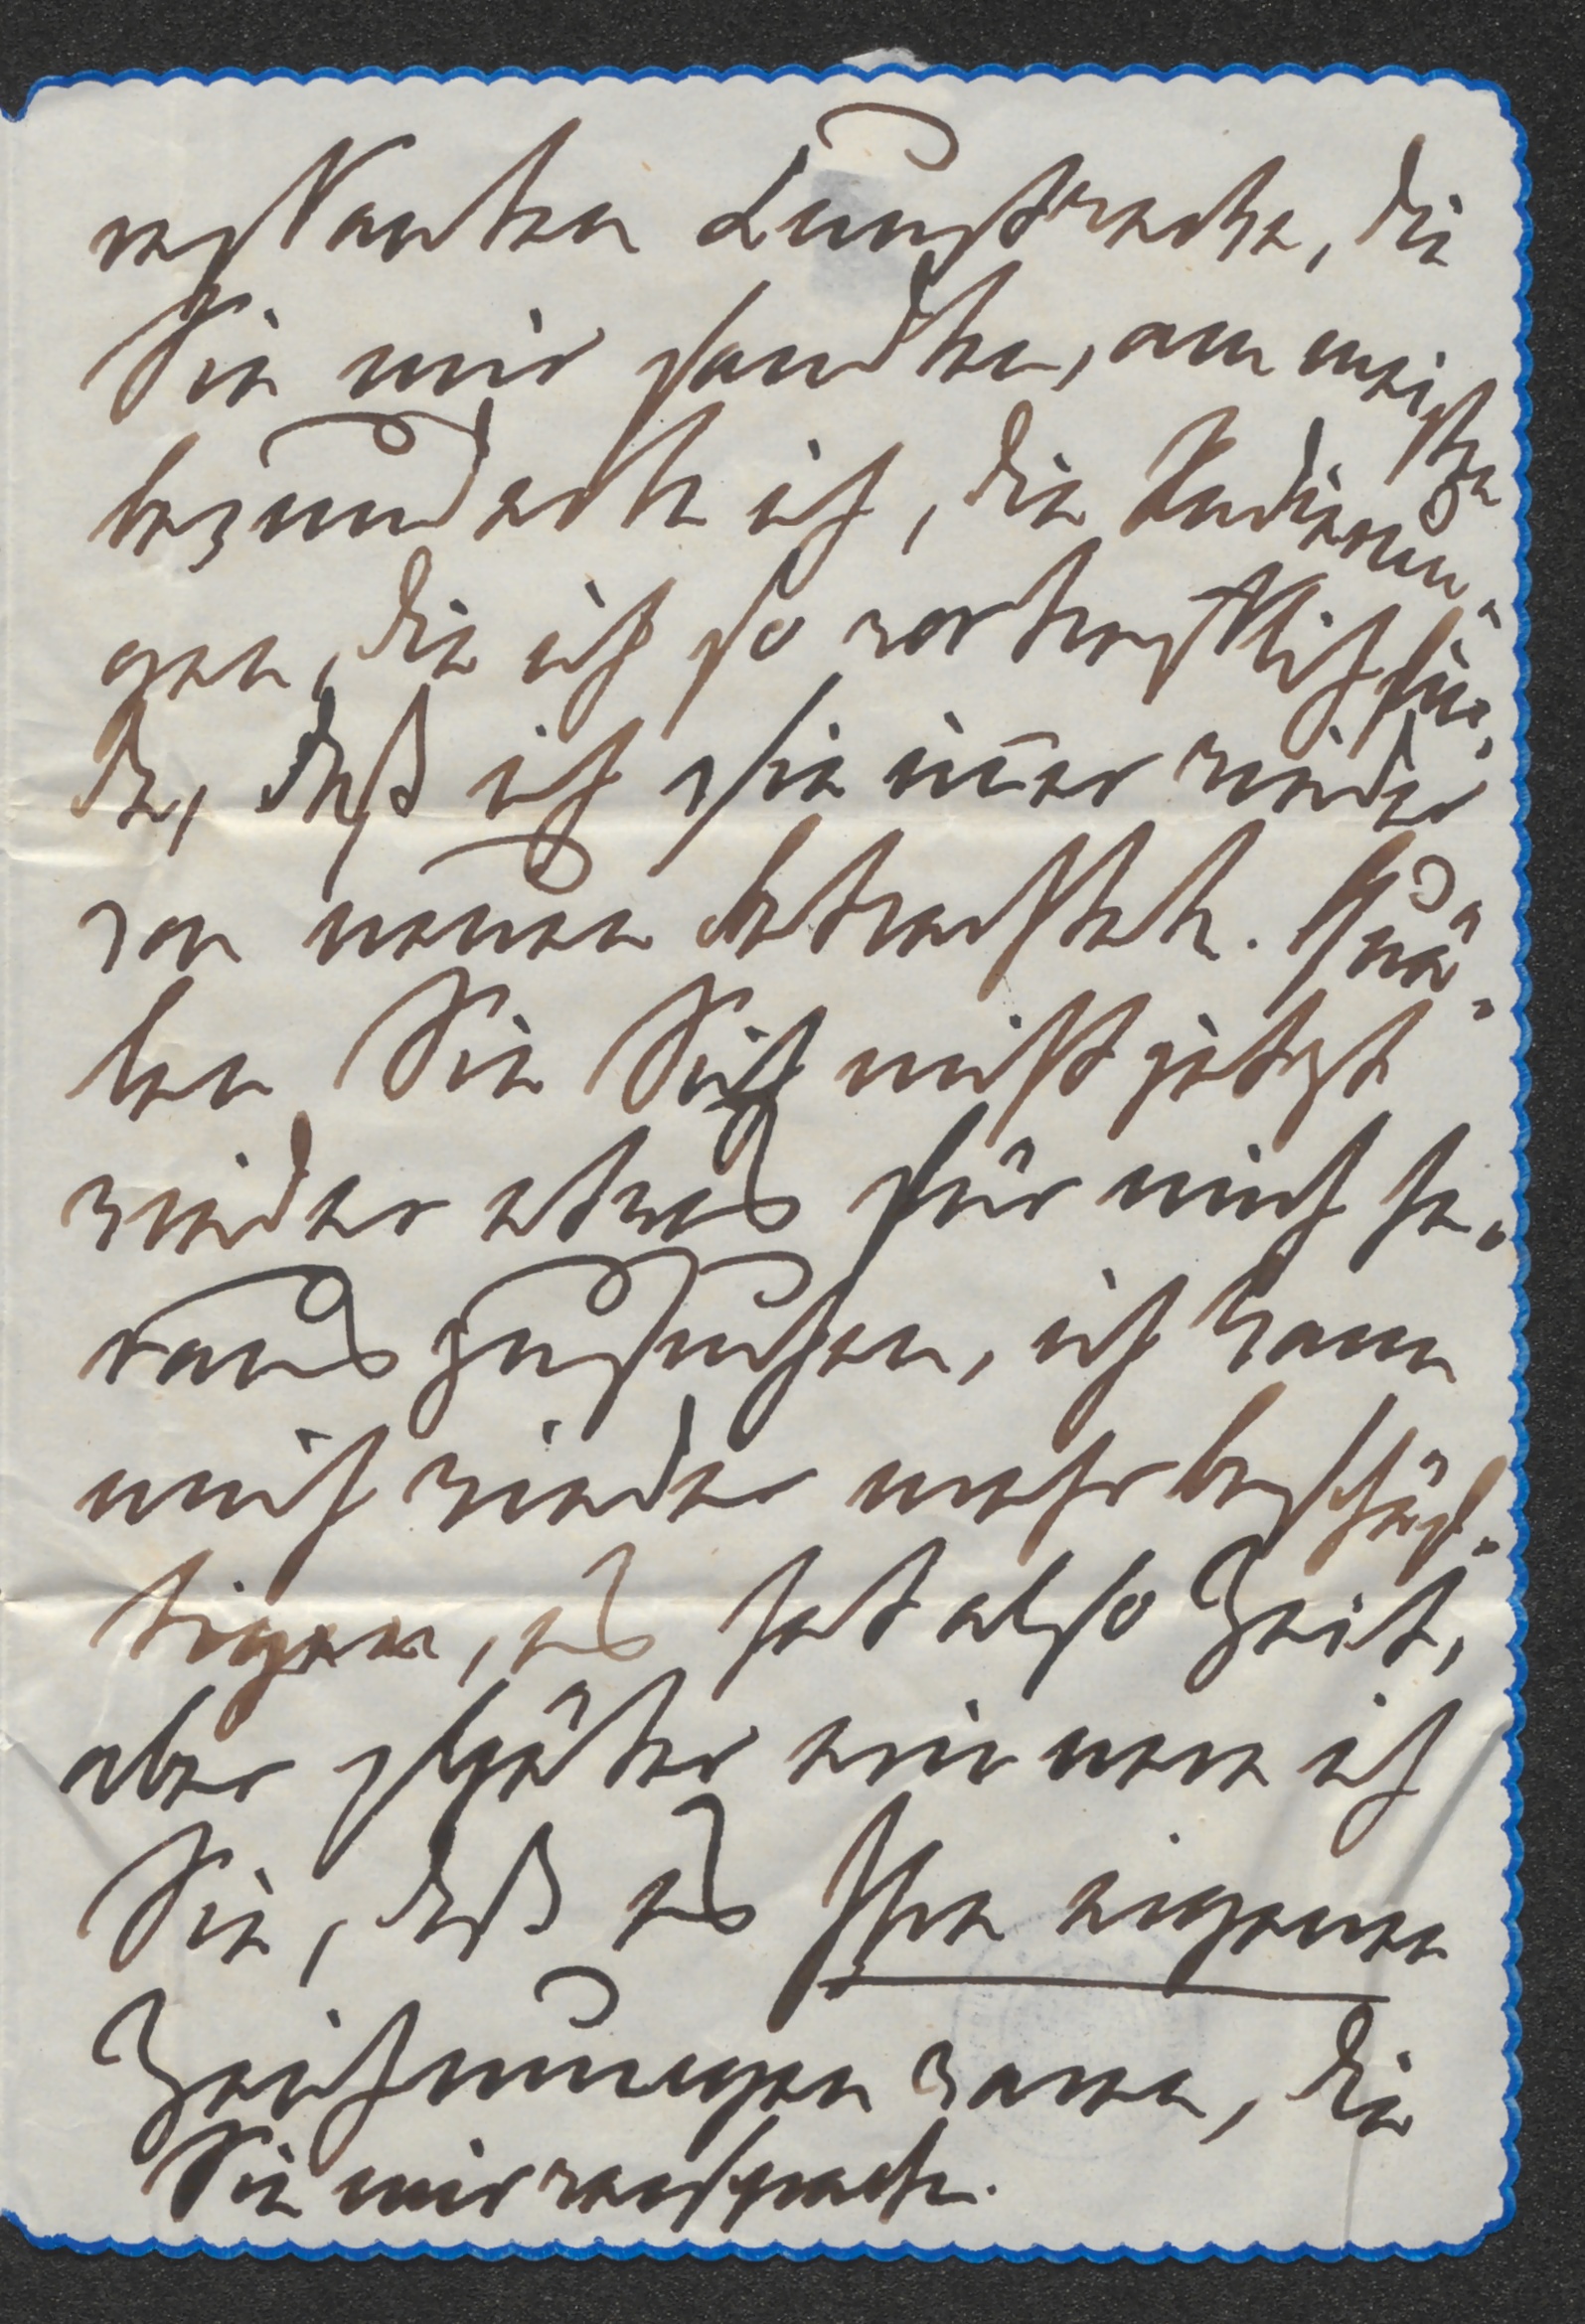 ressanten Kunstwerke, die
Sie mir sandten, am meisten
bewunderte ich, die Radierun-
gen, die ich so vortrefflich fin-
de, daß ich sie im̄er wieder
von neuem betrachtete. Quä-
len Sie Sich nicht jetzt
wieder etwas für mich he-
rauszusuchen, ich kann
mich wieder mehr beschäf-
tigen, es hat also Zeit,
aber später erinnere ich
Sie, daß es Ihre eigenen
Zeichnungen waren, die
Sie mir versprachen.